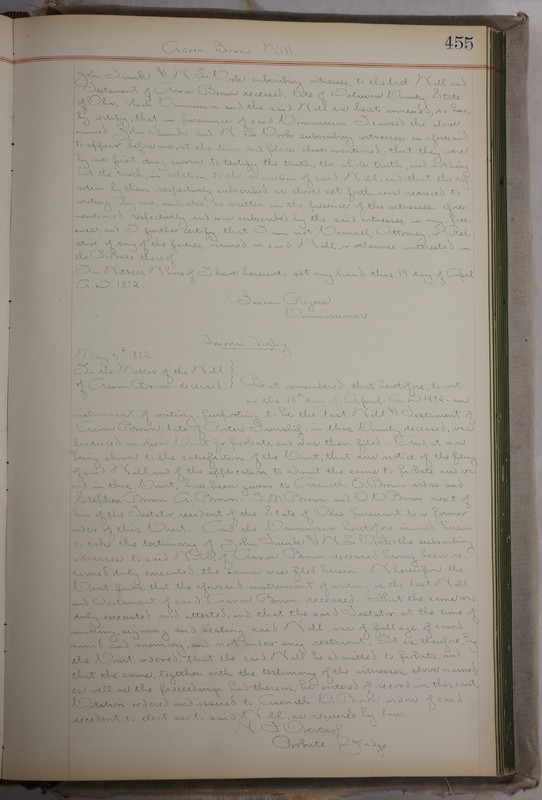 455
Aaron Brown Will
John Junk & N. S. Work subscribing witnesses, to the last Will and
Testament of Aaron Brown deceased, late of Delaware County State
of Ohio, which Commission and the said Will are hereto annexed, do here
by certify, that in pursuance of said Commission I caused the above
named John Junk and N. S. Work subscribing witnesses as aforesaid
to appear before me, at the time and place above mentioned, that they were
by me first duly sworn to testify the truth, the whole truth, and nothing
but the truth, in relation to the execution of said Will, and that the
by them respectively subscribed as above set forth were reduced to
writing by me and, also, so written in the presence of the witnesses afore
mentioned respectively, and was subscribed by the said witnesses in my pres
ence and I further certify that I am not Counsel, Attorney, or Rel
ative of any of the parties named in said Will, or otherwise interested in
the Probate thereof.
In Witness Whereof I have hereunto set my hand this 19 day of April
A.D. 1892.
Rogers
Commissioner
Journal Entry
May 1892
In the Matter of the Will
of Aaron Brown deceased } Be it remembered, that heretofore, to wit,
on the day of April A.D. 1892 an
instrument of writing, purporting to be the last Will & Testament of
Aaron Brown, late of Township, in this County deceased, was
produced in open Court for probate, and was then filed. And, it now
being shown to the satisfaction of the Court, that due notice of the filing
of said Will, and of the application to admit the same to probate and rec
ord in this Court, has been given to Brown widow and
Stephen Brown Brown, Brown and Brown next of
kin of the Testator, resident of the State of Ohio pursuant to a former
order of this Court. And the Commission heretofore issued herein
to take the testimony of John Junk & N. S. Work the subscribing
witnesses to said Will of Aaron Brown deceased having been re
turned duly executed, the same was filed herein. Whereupon the
Court finds that the aforesaid instrument of writing is the last Will
and Testament of said Aaron Brown deceased. That the same was
duly executed and attested, and that the said Testator at the time of
making, signing and sealing said Will, was of full age, of sound
mind and memory, and not under any restraint. It is therefore by
the Court ordered, that the said Will be admitted to probate, and
that the same, together with the testimony of the witnesses, above named
as well as the proceedings had therein, be entered of record in this court
Citation ordered and issued to Brown widow of said
decedent to elect as to said Will, as required by law
Probate Judge